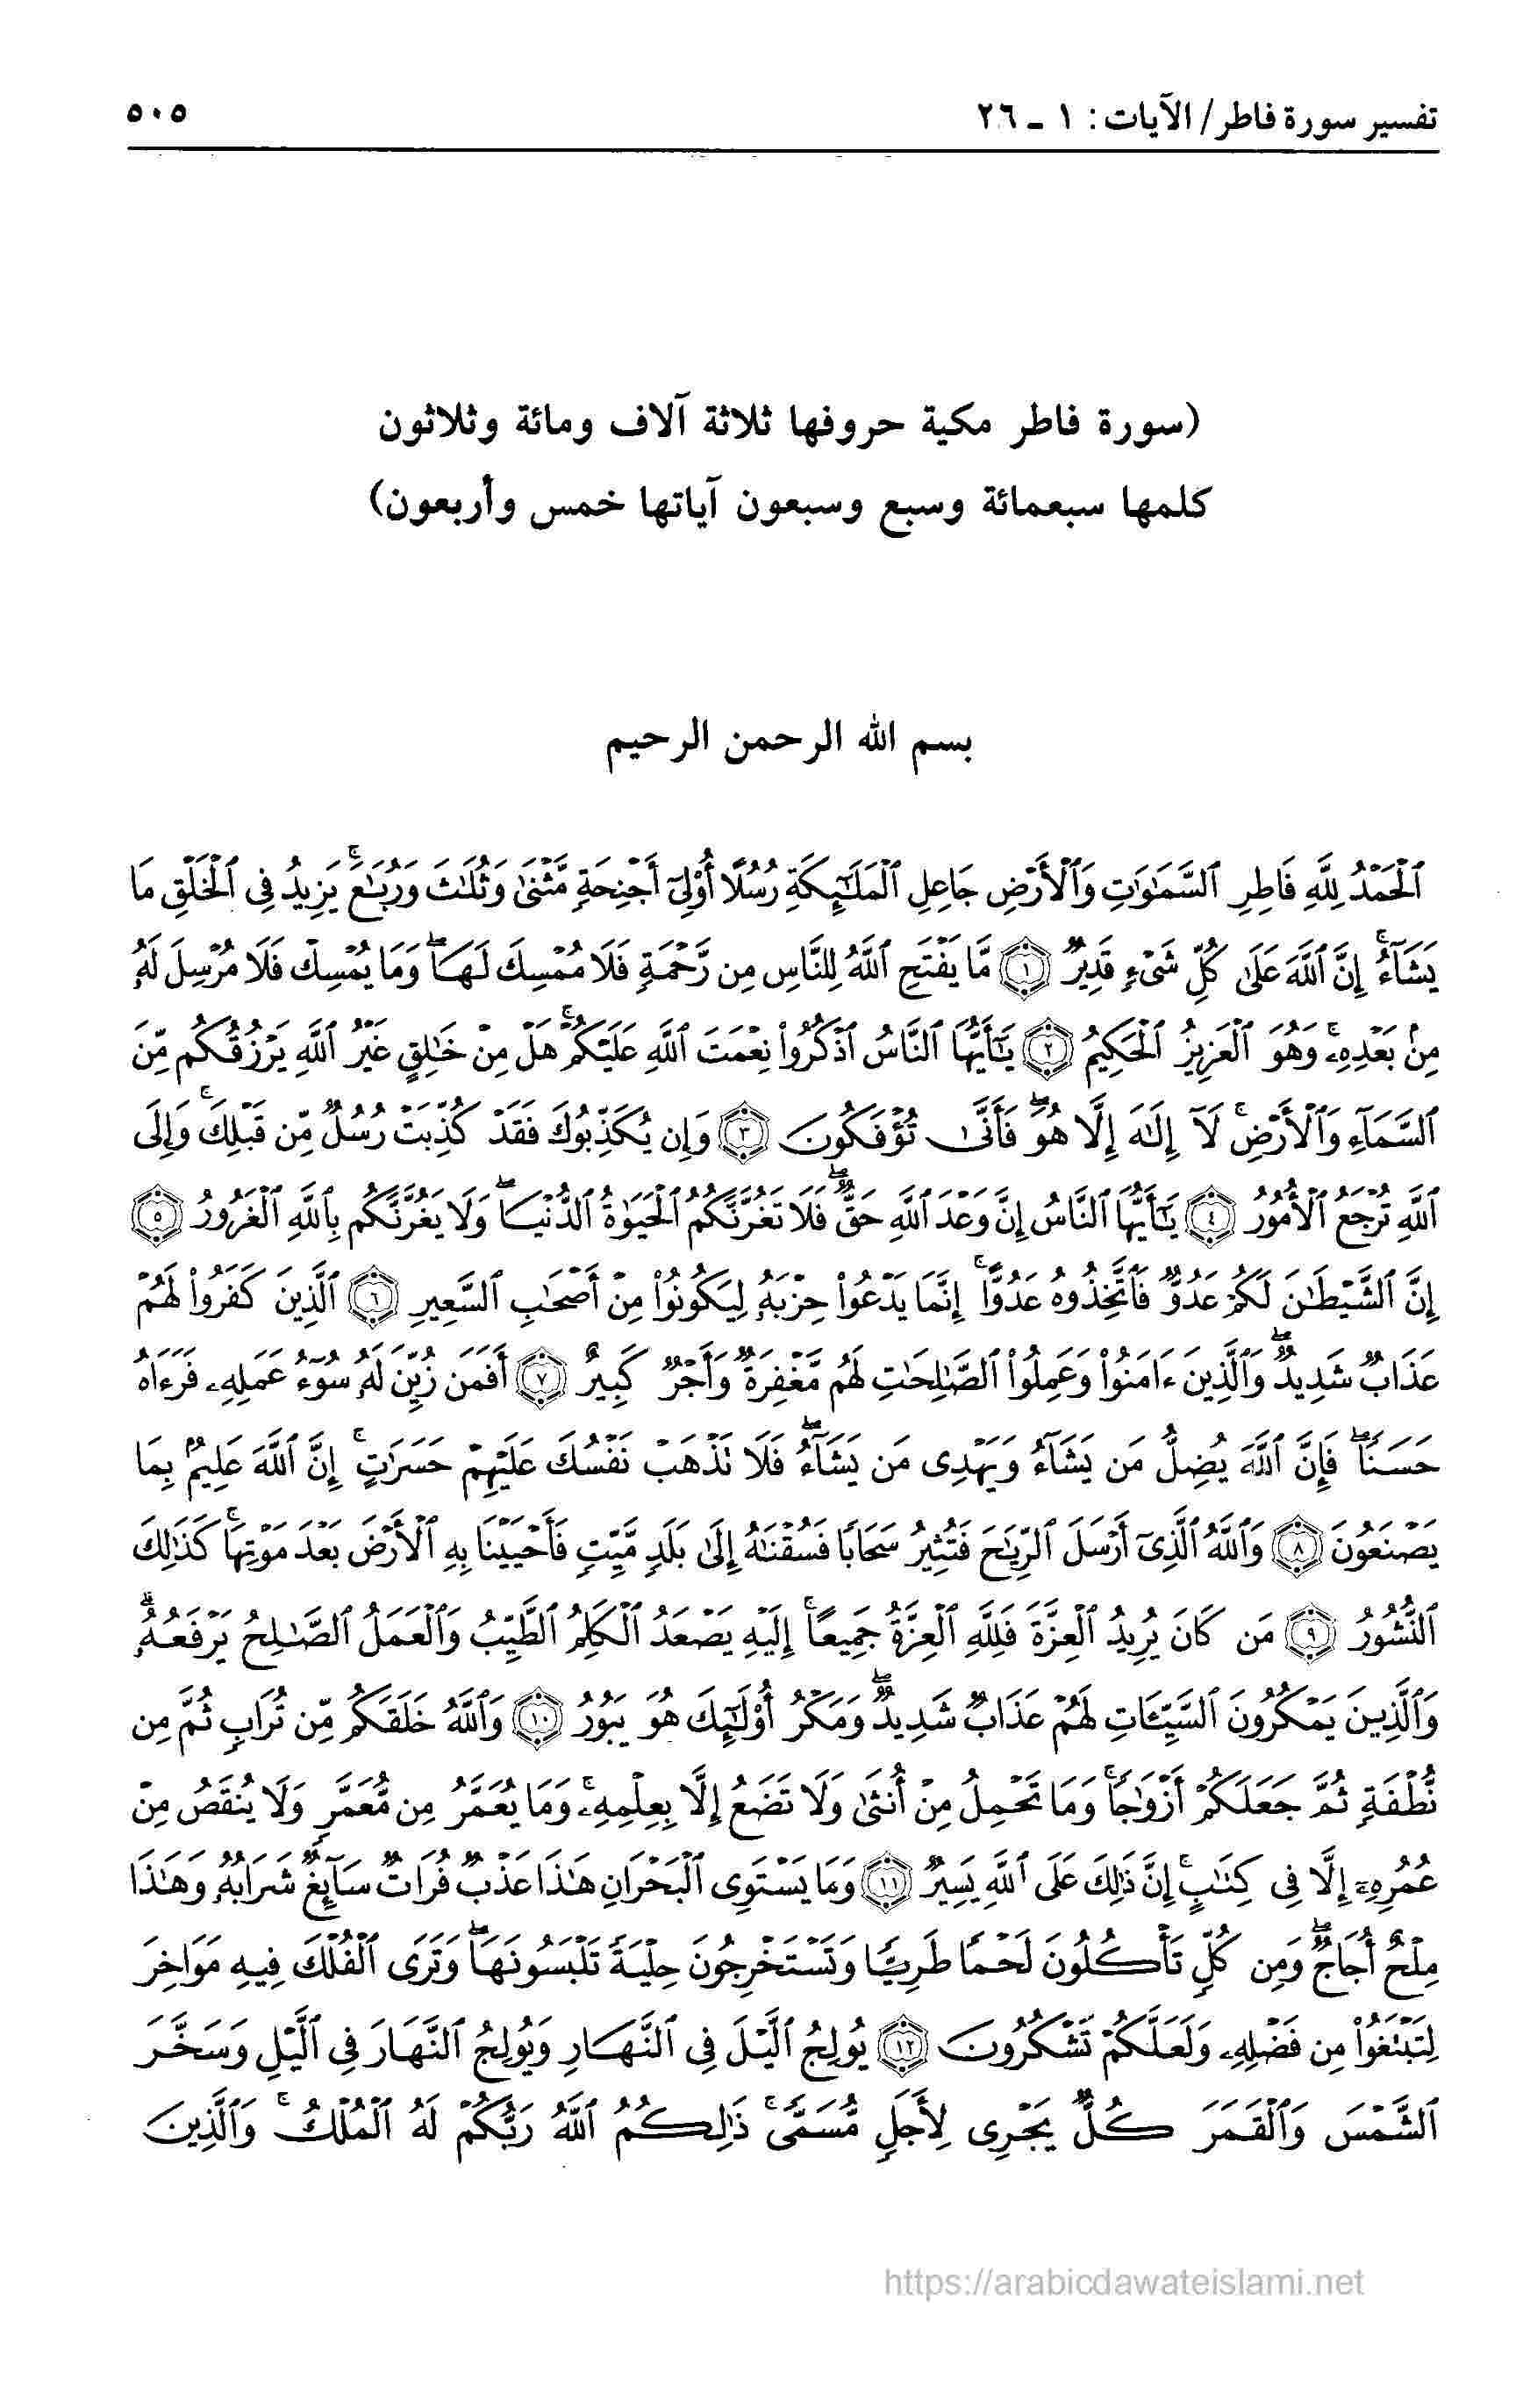 تفسير سورة فاطر/ الآيات: ١ ـ ٢٦
٥٠٥
(سورة فاطر مكية حروفها ثلاثة آلاف ومائة وثلاثون
كلمها سبعمائة وسبع وسبعون آياتها خمس وأربعون)
بسم الله الرحمن الرحيم
ٱلْحَمْدُ لِلَّهِ فَاطِرِ ٱلسَّمَٰوَٰتِ وَٱلْأَرْضِ جَاعِلِ ٱلْمَلَٰٓئِكَةِ رُسُلًا أُو۟لِىٓ أَجْنِحَةٍ مَّثْنَىٰ وَثُلَٰثَ وَرُبَٰعَ ۚ يَزِيدُ فِى ٱلْخَلْقِ مَا
يَشَآءُ ۚ إِنَّ ٱللَّهَ عَلَىٰ كُلِّ شَىْءٍ قَدِيرٌ ١ مَّا يَفْتَحِ ٱللَّهُ لِلنَّاسِ مِن رَّحْمَةٍ فَلَا مُمْسِكَ لَهَا ۖ وَمَا يُمْسِكْ فَلَا مُرْسِلَ لَهُۥ
مِنۢ بَعْدِهِۦ ۚ وَهُوَ ٱلْعَزِيزُ ٱلْحَكِيمُ ٢ يَٰٓأَيُّهَا ٱلنَّاسُ ٱذْكُرُوا۟ نِعْمَتَ ٱللَّهِ عَلَيْكُمْ ۚ هَلْ مِنْ خَٰلِقٍ غَيْرُ ٱللَّهِ يَرْزُقُكُم مِّنَ
ٱلسَّمَآءِ وَٱلْأَرْضِ ۚ لَآ إِلَٰهَ إِلَّا هُوَ ۖ فَأَنَّىٰ تُؤْفَكُونَ ٣ وَإِن يُكَذِّبُوكَ فَقَدْ كُذِّبَتْ رُسُلٌ مِّن قَبْلِكَ ۚ وَإِلَى
ٱللَّهِ تُرْجَعُ ٱلْأُمُورُ ٤ يَٰٓأَيُّهَا ٱلنَّاسُ إِنَّ وَعْدَ ٱللَّهِ حَقٌّ ۖ فَلَا تَغُرَّنَّكُمُ ٱلْحَيَوٰةُ ٱلدُّنْيَا ۖ وَلَا يَغُرَّنَّكُم بِٱللَّهِ ٱلْغَرُورُ ٥
إِنَّ ٱلشَّيْطَٰنَ لَكُمْ عَدُوٌّ فَٱتَّخِذُوهُ عَدُوًّا ۚ إِنَّمَا يَدْعُوا۟ حِزْبَهُۥ لِيَكُونُوا۟ مِنْ أَصْحَٰبِ ٱلسَّعِيرِ ٦ ٱلَّذِينَ كَفَرُوا۟ لَهُمْ
عَذَابٌ شَدِيدٌ ۖ وَٱلَّذِينَ ءَامَنُوا۟ وَعَمِلُوا۟ ٱلصَّٰلِحَٰتِ لَهُم مَّغْفِرَةٌ وَأَجْرٌ كَبِيرٌ ٧ أَفَمَن زُيِّنَ لَهُۥ سُوٓءُ عَمَلِهِۦ فَرَءَاهُ
حَسَنًا ۖ فَإِنَّ ٱللَّهَ يُضِلُّ مَن يَشَآءُ وَيَهْدِى مَن يَشَآءُ ۖ فَلَا تَذْهَبْ نَفْسُكَ عَلَيْهِمْ حَسَرَٰتٍ ۚ إِنَّ ٱللَّهَ عَلِيمٌۢ بِمَا
يَصْنَعُونَ ٨ وَٱللَّهُ ٱلَّذِىٓ أَرْسَلَ ٱلرِّيَٰحَ فَتُثِيرُ سَحَابًا فَسُقْنَٰهُ إِلَىٰ بَلَدٍ مَّيِّتٍ فَأَحْيَيْنَا بِهِ ٱلْأَرْضَ بَعْدَ مَوْتِهَا ۚ كَذَٰلِكَ
ٱلنُّشُورُ ٩ مَن كَانَ يُرِيدُ ٱلْعِزَّةَ فَلِلَّهِ ٱلْعِزَّةُ جَمِيعًا ۚ إِلَيْهِ يَصْعَدُ ٱلْكَلِمُ ٱلطَّيِّبُ وَٱلْعَمَلُ ٱلصَّٰلِحُ يَرْفَعُهُۥ ۚ
وَٱلَّذِينَ يَمْكُرُونَ ٱلسَّيِّـَٔاتِ لَهُمْ عَذَابٌ شَدِيدٌ ۖ وَمَكْرُ أُو۟لَٰٓئِكَ هُوَ يَبُورُ ١٠ وَٱللَّهُ خَلَقَكُم مِّن تُرَابٍ ثُمَّ مِن
نُّطْفَةٍ ثُمَّ جَعَلَكُمْ أَزْوَٰجًا ۚ وَمَا تَحْمِلُ مِنْ أُنثَىٰ وَلَا تَضَعُ إِلَّا بِعِلْمِهِۦ ۚ وَمَا يُعَمَّرُ مِن مُّعَمَّرٍ وَلَا يُنقَصُ مِنْ
عُمُرِهِۦٓ إِلَّا فِى كِتَٰبٍ ۚ إِنَّ ذَٰلِكَ عَلَى ٱللَّهِ يَسِيرٌ ١١ وَمَا يَسْتَوِى ٱلْبَحْرَانِ هَٰذَا عَذْبٌ فُرَاتٌ سَآئِغٌ شَرَابُهُۥ وَهَٰذَا
مِلْحٌ أُجَاجٌ ۖ وَمِن كُلٍّ تَأْكُلُونَ لَحْمًا طَرِيًّا وَتَسْتَخْرِجُونَ حِلْيَةً تَلْبَسُونَهَا ۖ وَتَرَى ٱلْفُلْكَ فِيهِ مَوَاخِرَ
لِتَبْتَغُوا۟ مِن فَضْلِهِۦ وَلَعَلَّكُمْ تَشْكُرُونَ ١٢ يُولِجُ ٱلَّيْلَ فِى ٱلنَّهَارِ وَيُولِجُ ٱلنَّهَارَ فِى ٱلَّيْلِ وَسَخَّرَ
ٱلشَّمْسَ وَٱلْقَمَرَ كُلٌّ يَجْرِى لِأَجَلٍ مُّسَمًّى ۚ ذَٰلِكُمُ ٱللَّهُ رَبُّكُمْ لَهُ ٱلْمُلْكُ ۚ وَٱلَّذِينَ
https://arabicdawateislami.net